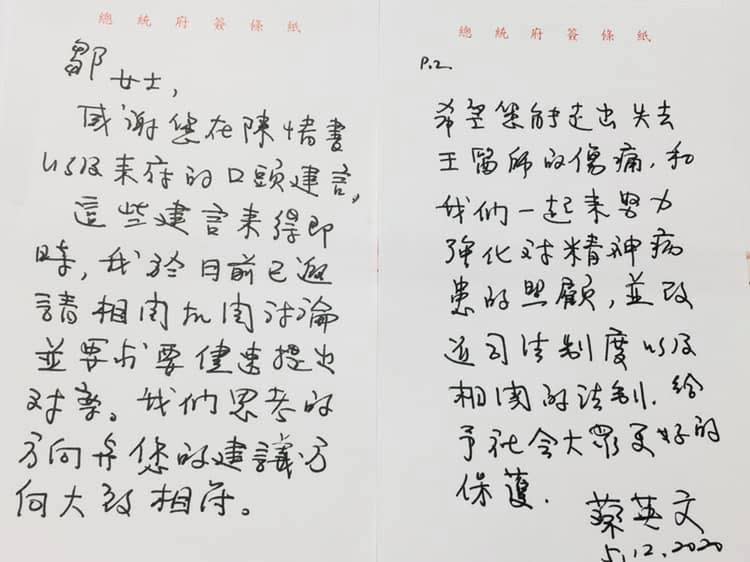 總統府簽條紙
鄒女士，
感謝您在陳情書
以及來府的口頭建言，
這些建言來得即
時，我於日前已邀
請相関机関討論
並要求要侭速提出
对案。我们思考的
方向与您的建議方
向大致相符。
總統府簽條紙
P.2
希望您能走出失去
王醫師的傷痛，和
我们一起来努力
強化对精神病
患的照顧，並改
近司法制度以及
相関的法制，給
予社会大眾更好的
保護．
蔡英文
5.12.2020